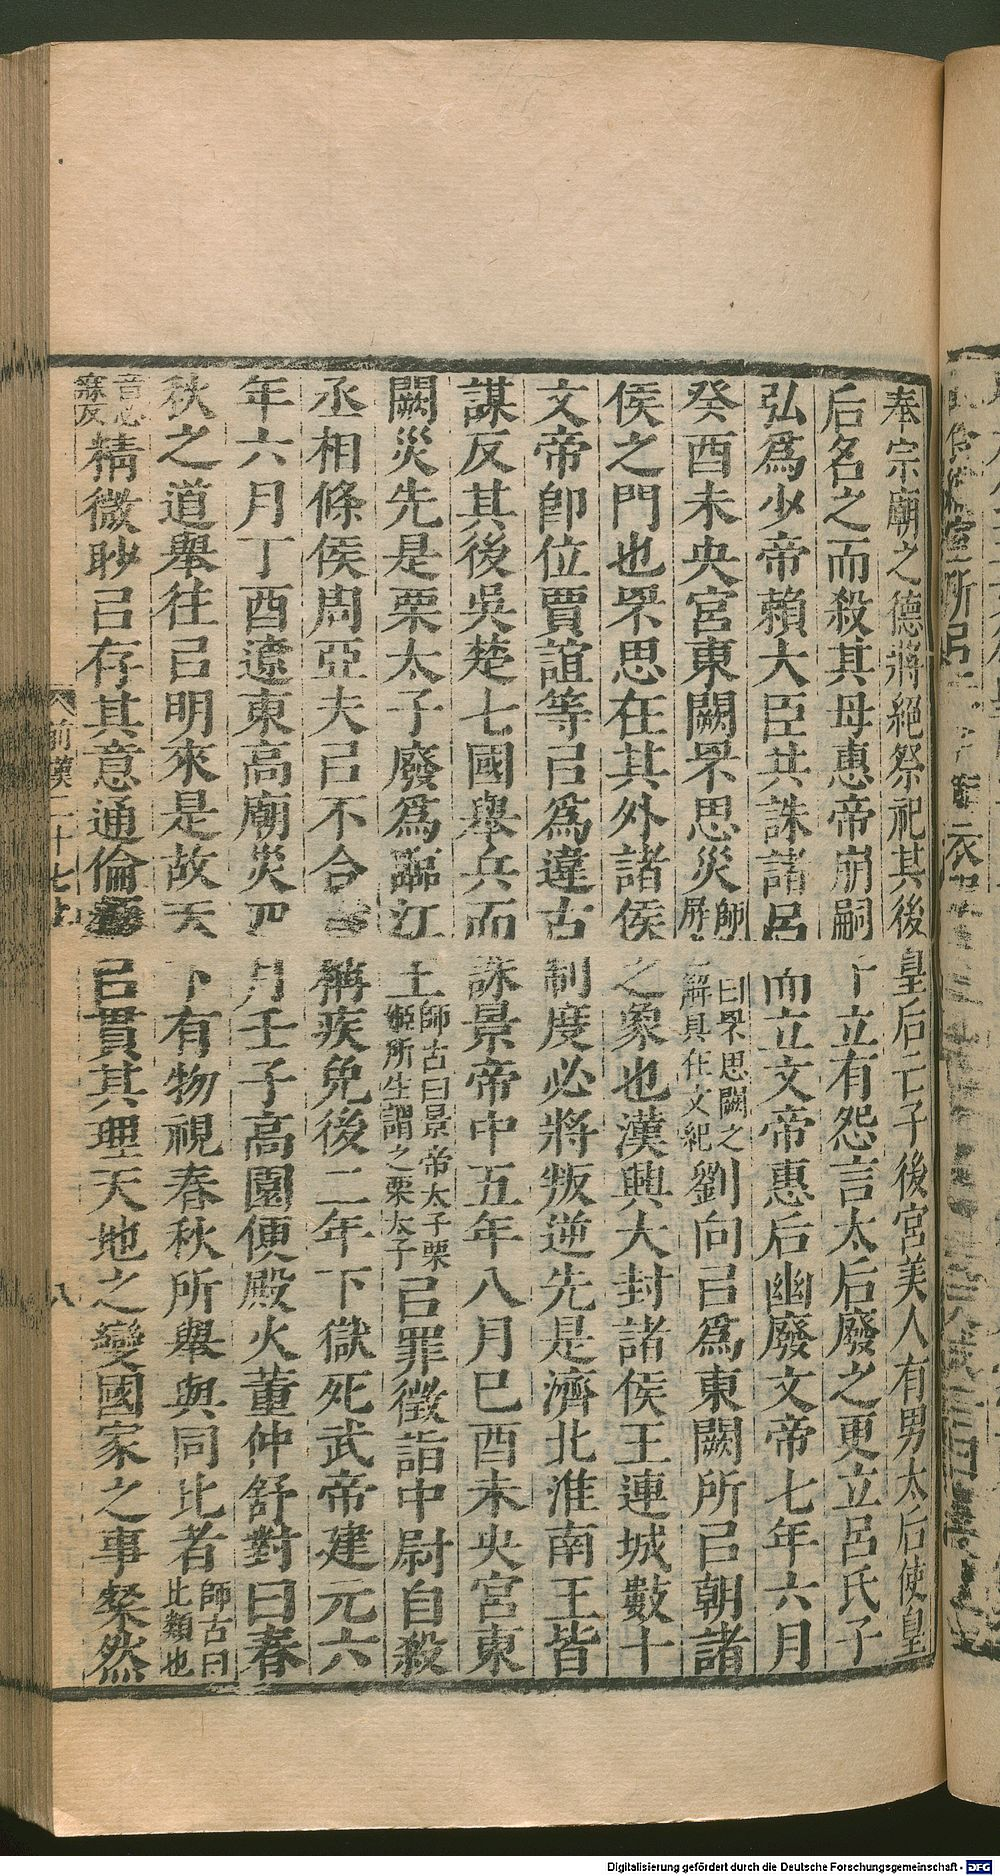 奉宗廟之德將絕祭祀其後皇后亡子後宮美人有男太后使皇
后名之而殺其母惠帝崩嗣子立有怨言太后廢之更立呂氏子
弘爲少帝賴大臣共誅諸呂而立文帝惠后幽廢文帝七年六月
癸酉未央宮東闕罘思災師古曰罘思闕之屛也解具在文紀劉向㠯爲東闕所㠯朝諸
侯之門也罘思在其外諸侯之象也漢興大封諸侯王連城數十
文帝卽位賈誼等㠯爲違古制度必將叛逆先是濟北淮南王皆
謀反其後吳楚七國舉兵而誅景帝中五年八月己酉未央宮東
闕災先是栗太子廢爲臨江王師古曰景帝太子栗姬所生謂之栗太子㠯罪徵詣中尉自殺
丞相條侯周亞夫㠯不合旨稱疾免後二年下獄死武帝建元六
年六月丁酉遼東高廟災四月壬子高園便殿火董仲舒對曰春
秋之道舉往㠯明來是故天下有物視春秋所舉與同比者師古曰比類也
音必寐反精微眇㠯存其意通倫類㠯貫其理天地之變國家之事粲然
前漢二十七上
八
Digitalisierung gefördert durch die Deutsche Forschungsgemeinschaft - DFG